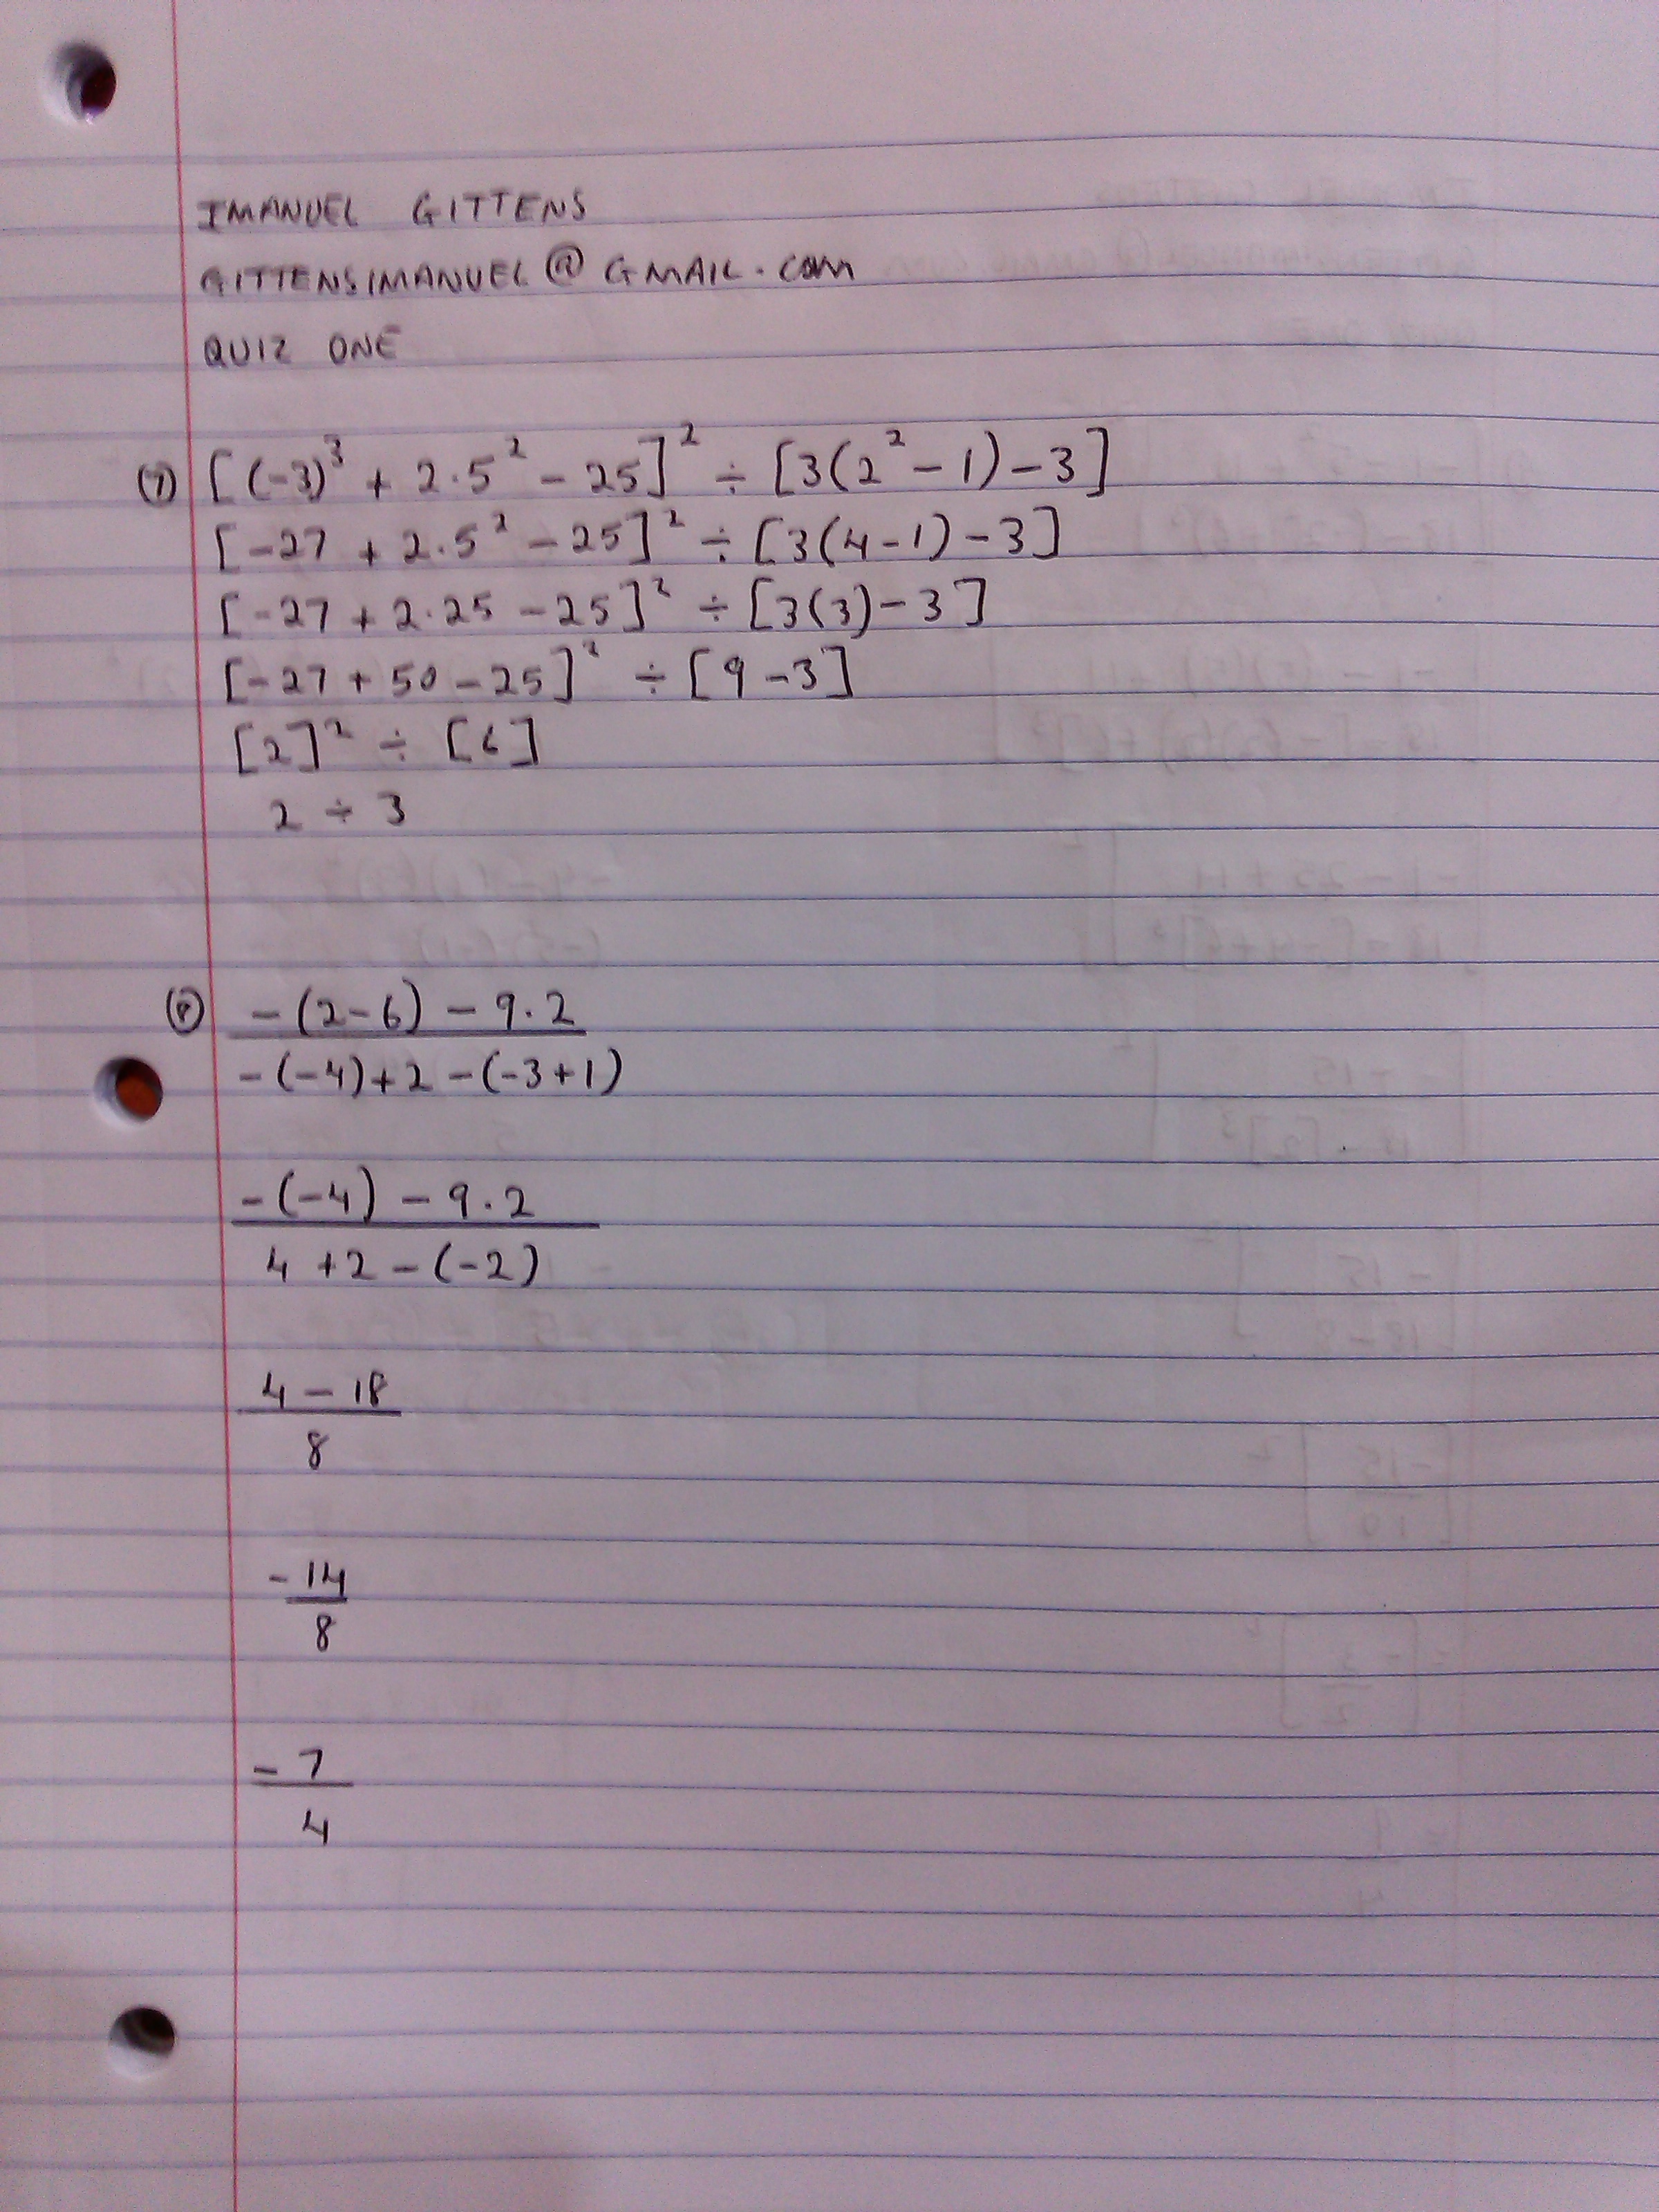 IMANUEL GITTENS
GITTENSIMANUEL@GMAIL.COM
QUIZ ONE
(7) [(-3)³ + 2·5² - 25]² ÷ [3(2² - 1) - 3]
[-27 + 2·5² - 25]² ÷ [3(4-1) - 3]
[-27 + 2·25 - 25]² ÷ [3(3) - 3]
[-27 + 50 - 25]² ÷ [9 - 3]
[2]² ÷ [6]
2 ÷ 3
(8) -(2-6) - 9·2
-(-4)+2 -(-3+1)
-(-4) - 9·2
4 +2 -(-2)
4 - 18
8
-14
8
-7
4